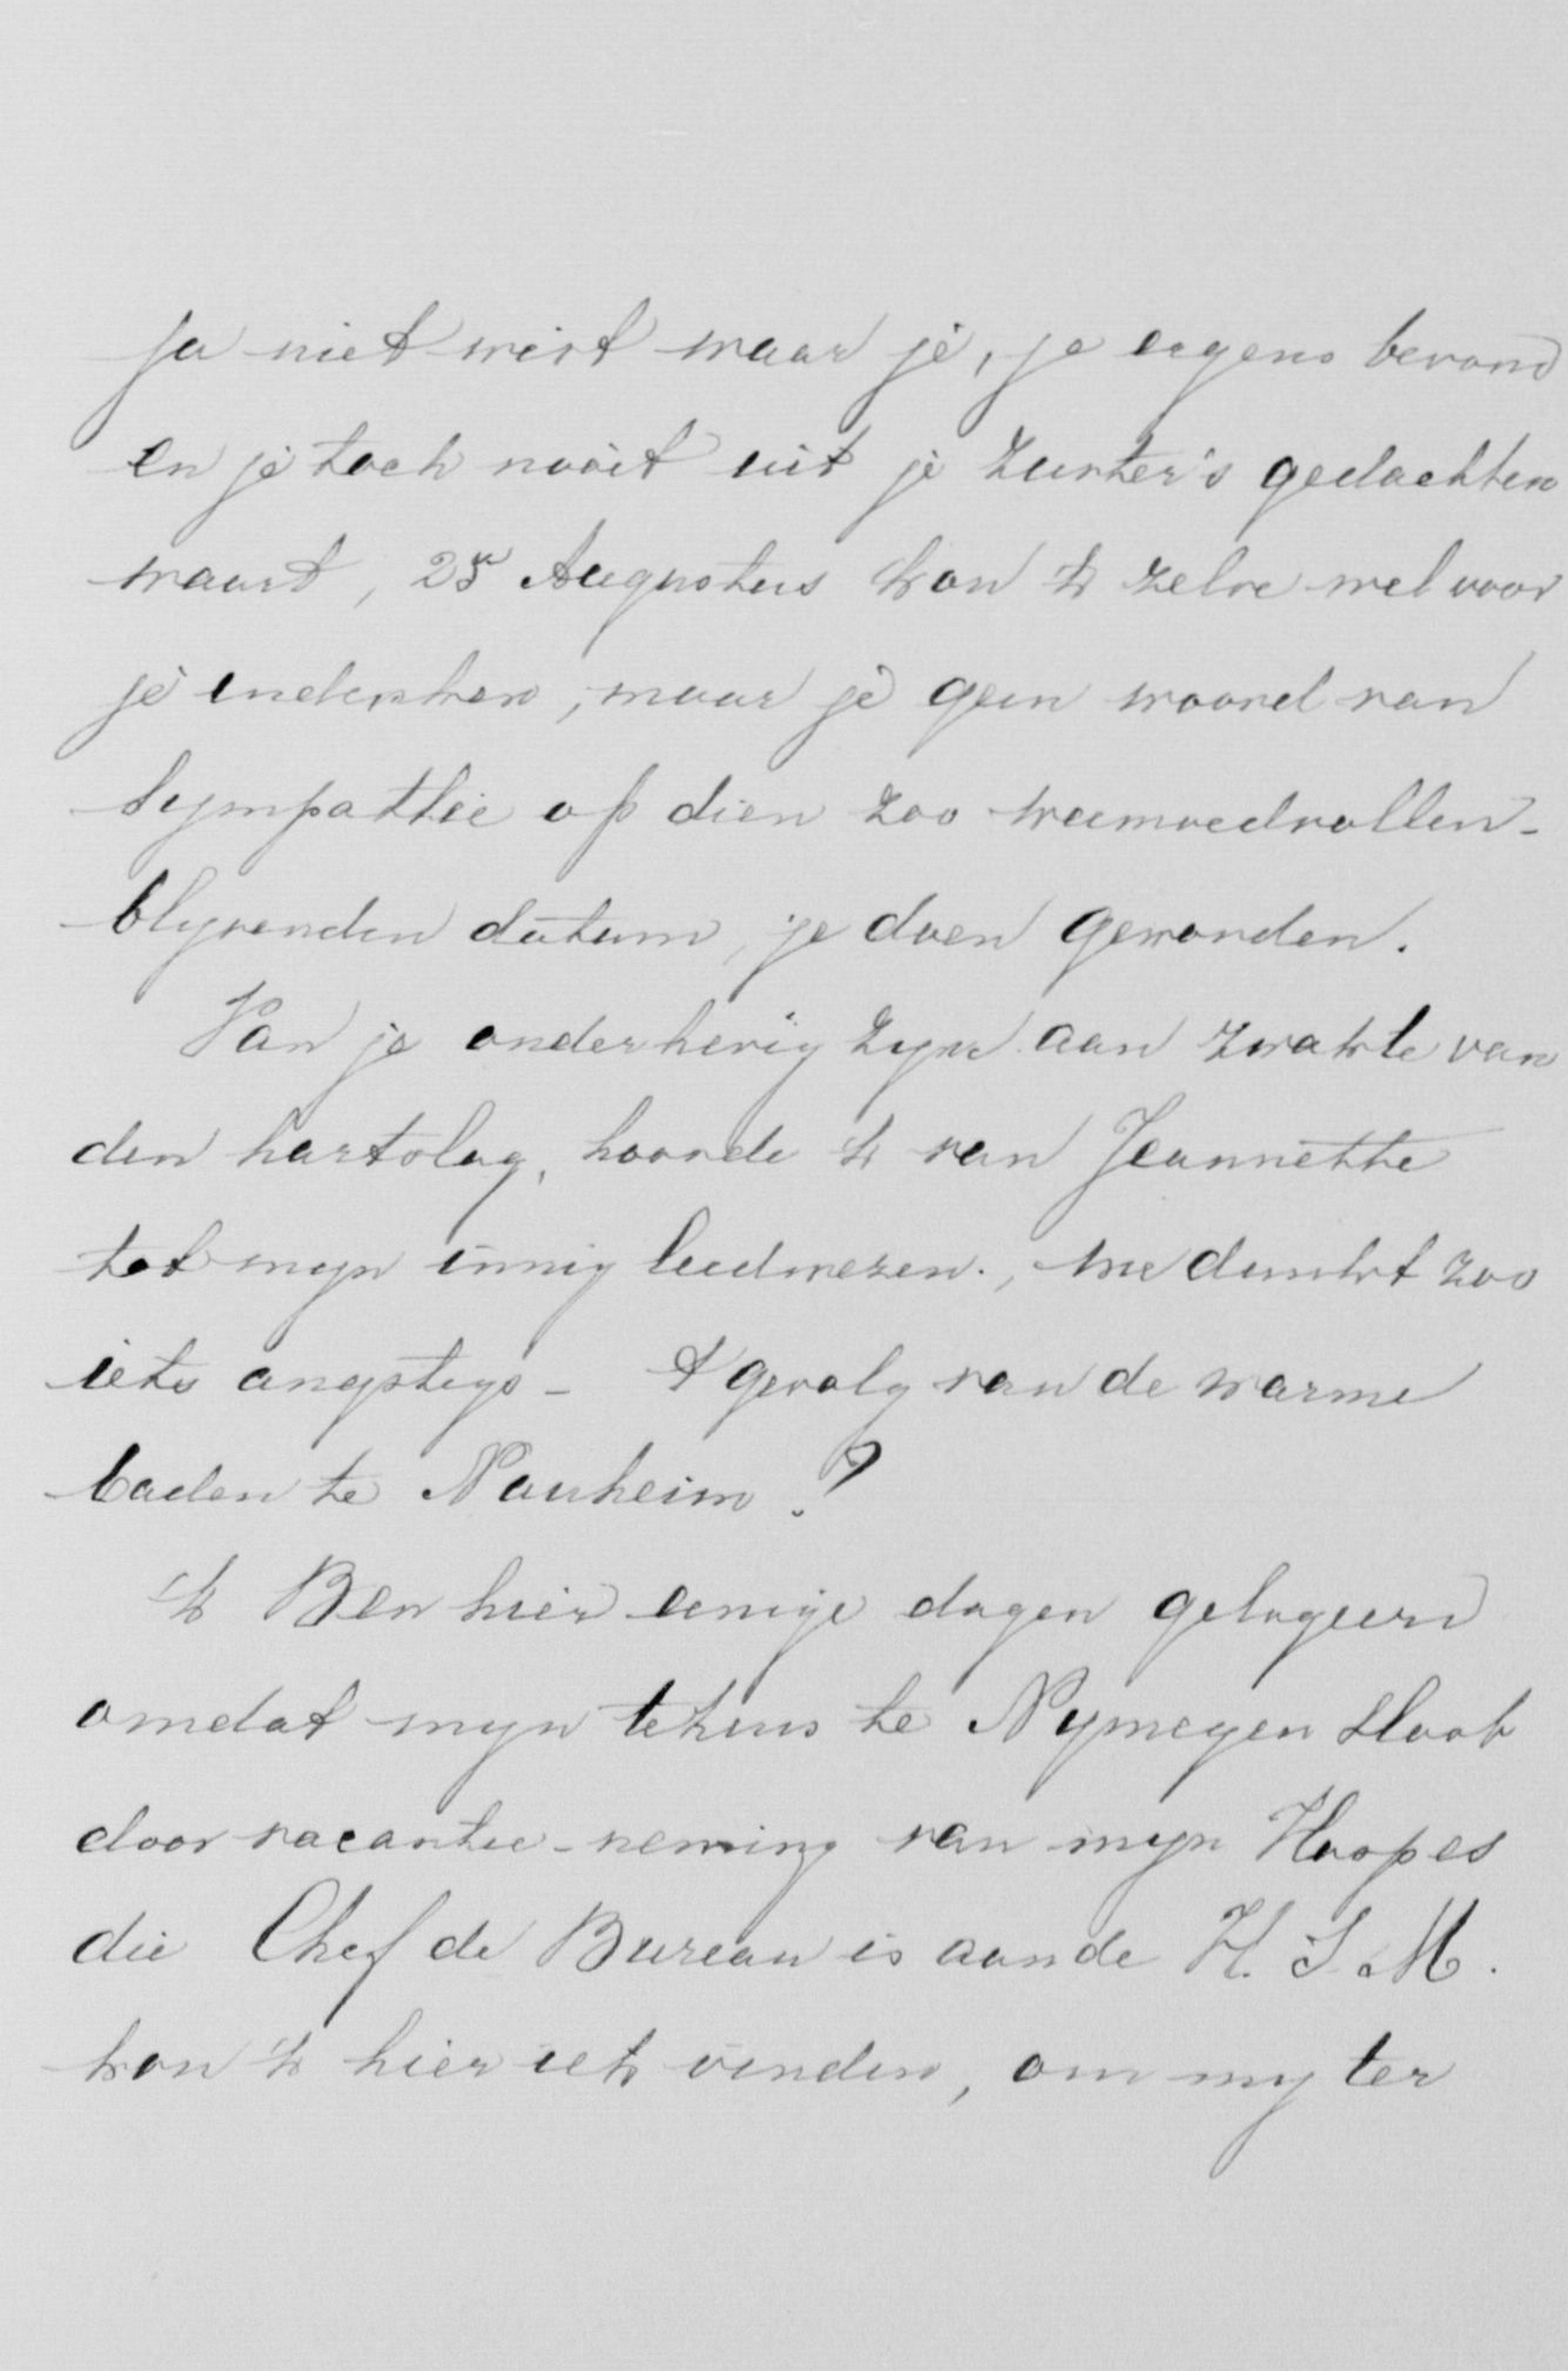 ja niet wist waar je, je ergens bevond
en je toch nooit uit je zuster's gedachten
waart, 25n Augustus kon 'k zelve wel voor
je indenken, maar je geen woord van
sympathie op dien zoo weemoedvollen-
blyvenden datum, je doen geworden.
Van je onderhevig zyn aan zwakte van
den hartslag, hoorde 'k van Jeannette
tot myn innig leedwezen., me dunkt zoo
iets angstigs - 't gevolg van de warme
baden te Nauheim?
'k Ben hier eenige dagen gelogeerd
omdat myn tehuis te Nymegen sloot
door vacantie-neming van myn
die Chef de Bureau is aan de H. S. M.
kon 'k hier iets vinden, om my ter